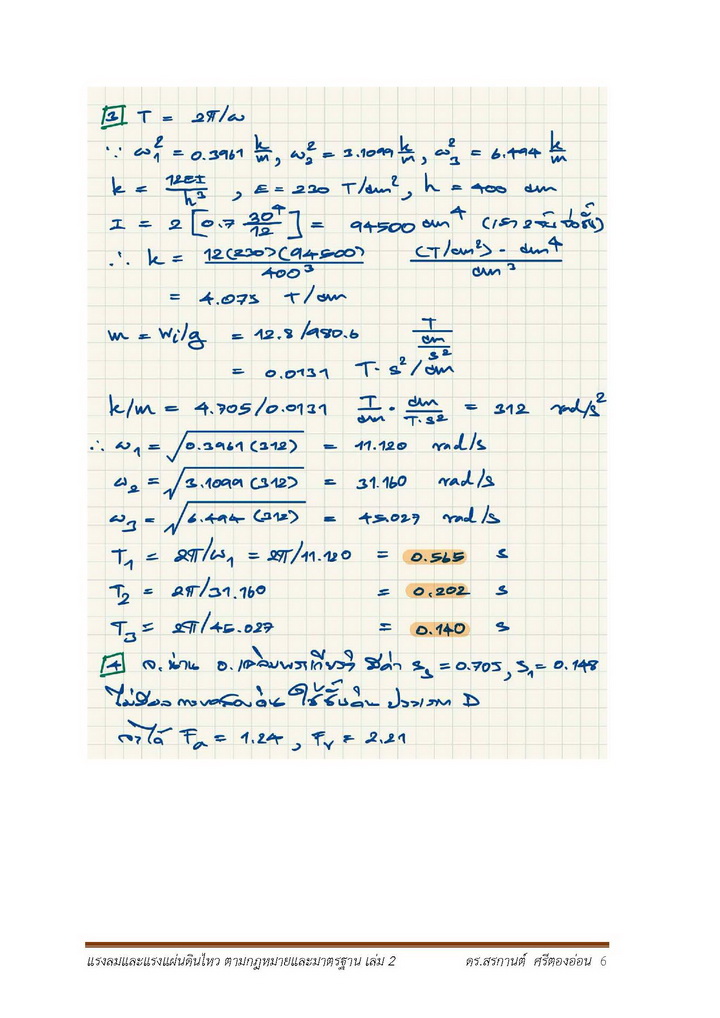 3 T = 2π/ω
∵ ω₁² = 0.3961 k/m, ω₂² = 3.1099 k/m, ω₃² = 6.494 k/m
k = 12EI/h³, E = 230 T/cm², h = 400 cm
I = 2 [0.7 30⁴/12] = 94500 cm⁴ (เสา 2 ต้น
∴ k = 12(230)(94500)/400³ (T/cm²) - cm⁴/cm³
= 4.075 T/cm
m = Wi/g = 12.8/980.6 T/cm/s²
= 0.0131 T·s²/cm
k/m = 4.705/0.0131 T/cm · cm/T·s² = 312 rad/s²
∴ ω₁ = √0.3961(312) = 11.120 rad/s
ω₂ = √3.1099(312) = 31.160 rad/s
ω₃ = √6.494(312) = 45.027 rad/s
T₁ = 2π/ω₁ = 2π/11.120 = 0.565 s
T₂ = 2π/31.160 = 0.202 s
T₃ = 2π/45.027 = 0.140 s
4 จ.น่าน อ.เฉลิมพระเกียรติ มีค่า Ss = 0.705, S₁ = 0.148
ใช้ชั้นดิน ประเภท D
จะได้ Fa = 1.24, Fv = 2.21
แรงลมและแรงแผ่นดินไหว ตามกฎหมายและมาตรฐาน เล่ม 2 ดร.สรกานต์ ศรีตองอ่อน 6